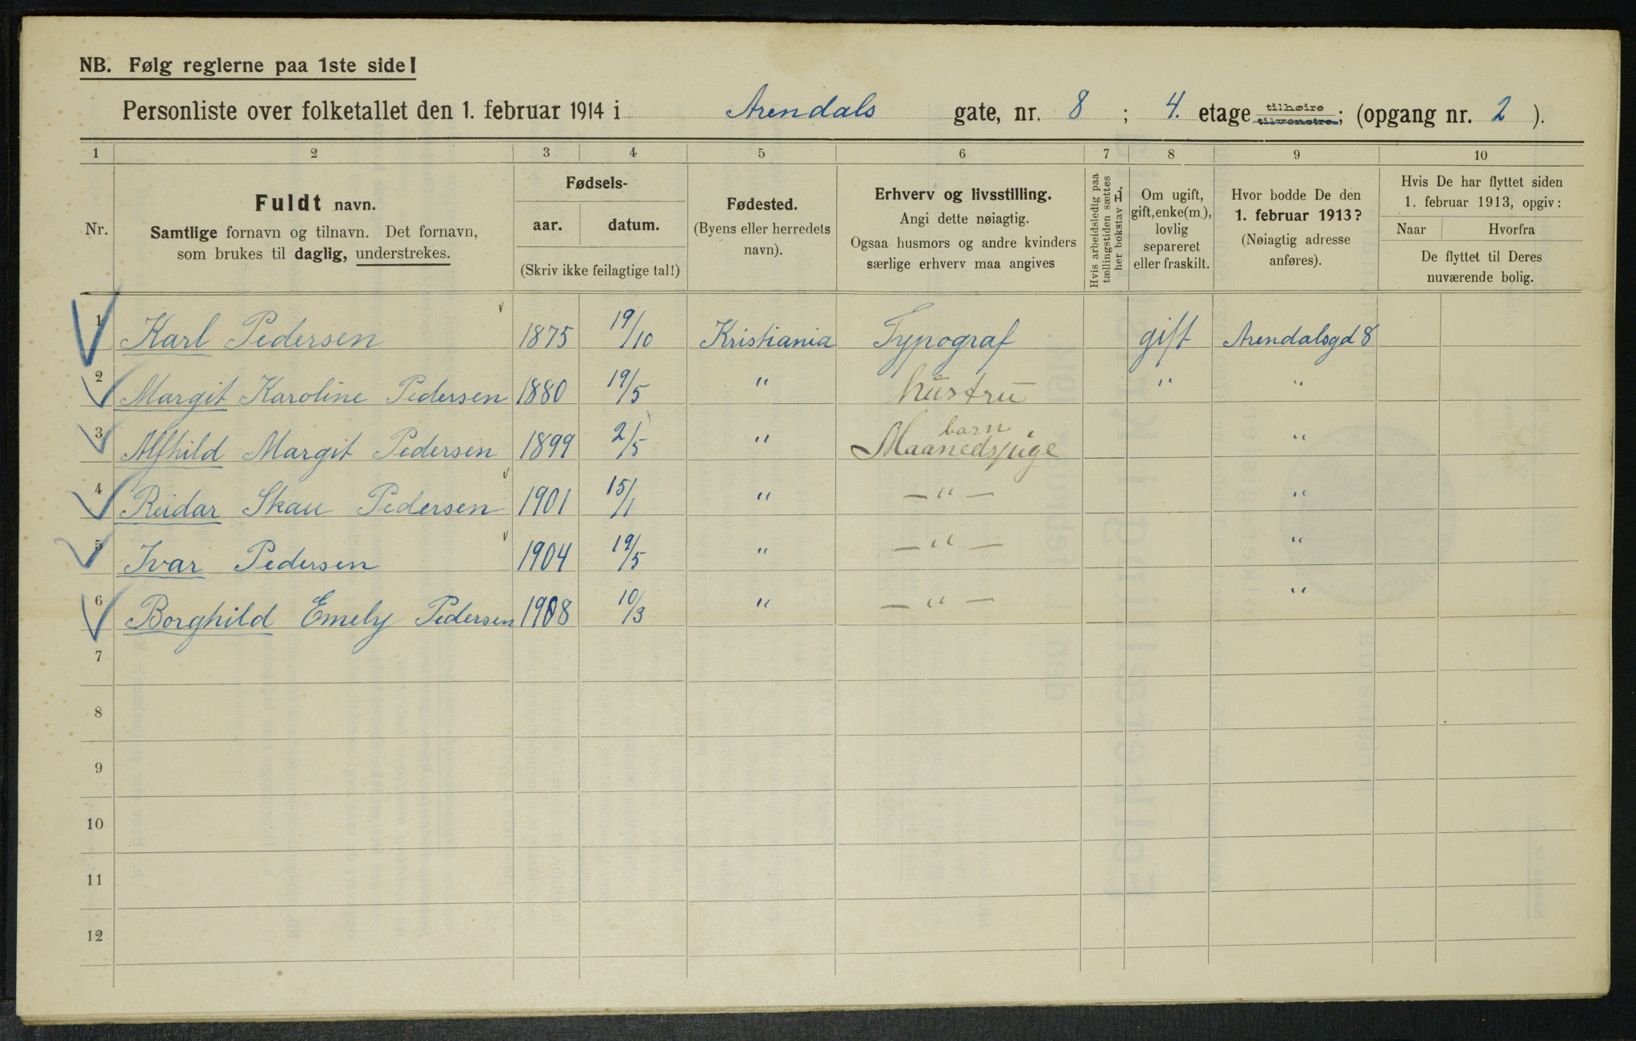 NB. Følg reglerne paa 1ste side!
Personliste over folketallet den 1. februar 1914 i Arendals gate, nr. 8 ; 4. etage tilhøire tilvenstre; (opgang nr. 2 ).
1 2 3 4 5 6 7 8 9 10
Nr.
Fuldt navn.
Samtlige fornavn og tilnavn. Det fornavn,
som brukes til daglig, understrekes.
Fødsels-
aar. datum.
(Skriv ikke feilagtige tal!)
Fødested.
(Byens eller herredets
navn).
Erhverv og livsstilling.
Angi dette nøiagtig.
Ogsaa husmors og andre kvinders
særlige erhverv maa angives
Hvis arbeidsledig paa
tællingstiden sættes
her bokstav L.
Om ugift,
gift, enke(m.),
lovlig
separeret
eller fraskilt.
Hvor bodde De den
1. februar 1913?
(Nøiagtig adresse
anføres).
Hvis De har flyttet siden
1. februar 1913, opgiv:
Naar Hvorfra
De flyttet til Deres
nuværende bolig.
1 Karl Pedersen 1875 19/10 Kristiania Typograf gift Arendalsgd 8
2 Margit Karoline Pedersen 1880 19/5 " hustru " "
3 Alfhild Margit Pedersen 1899 2/5 " barn Maanedspige "
4 Reidar Skau Pedersen 1901 15/1 " — " — "
5 Ivar Pedersen 1904 19/5 " — " — "
6 Borghild Emely Pedersen 1908 10/3 " — " — "
7
8
9
10
11
12